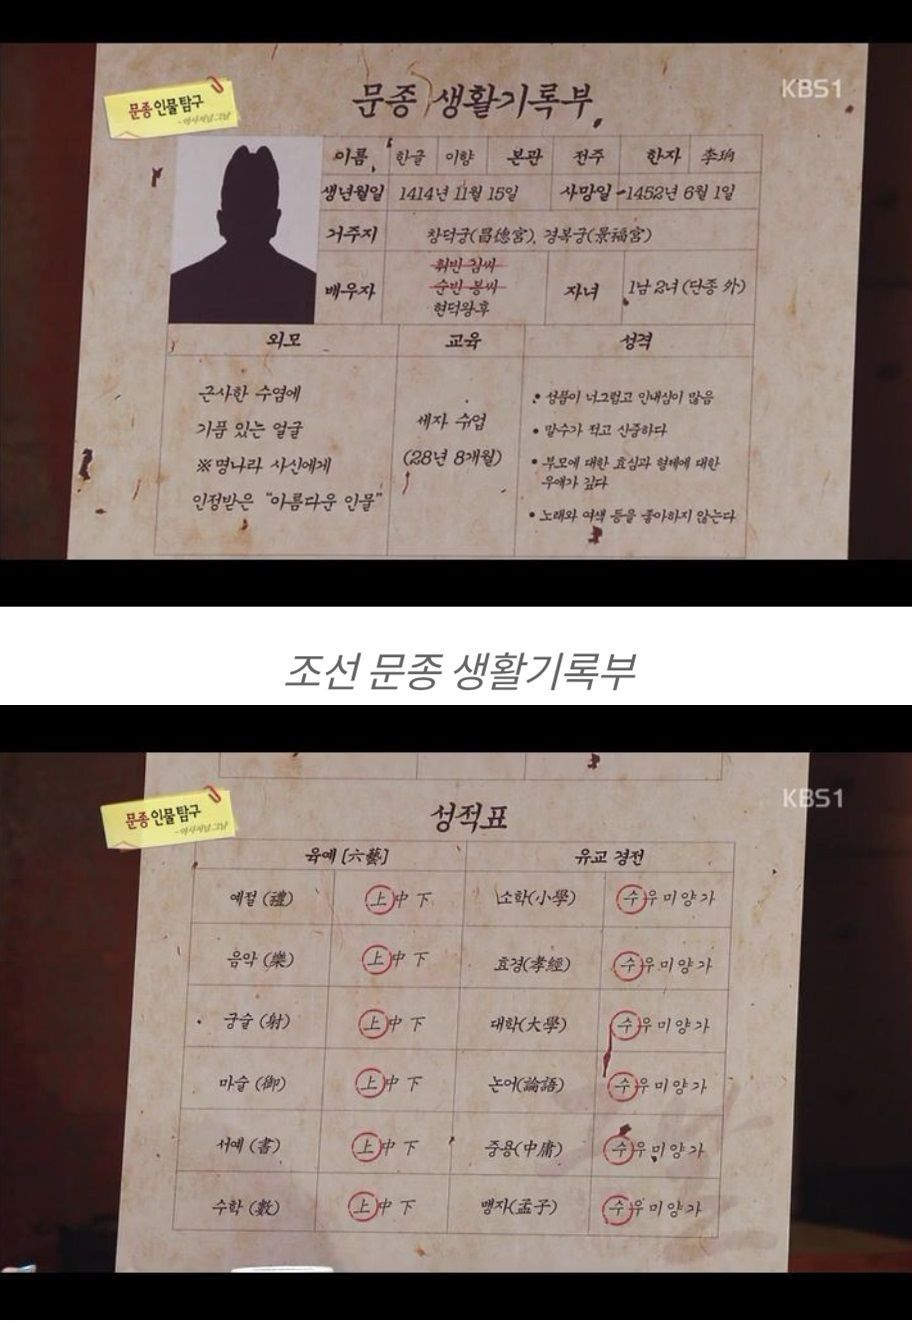 문종 인물탐구
-역사저널 그날
KBS1
문종 생활기록부
이름 한글 이향 본관 전주 한자 李珦
생년월일 1414년 11월 15일 사망일 1452년 6월 1일
거주지 창덕궁(昌德宮), 경복궁(景福宮)
배우자
휘빈 김씨
순빈 봉씨
현덕왕후
자녀 1남 2녀 (단종 外)
외모 교육 성격
근사한 수염에
기품 있는 얼굴
※명나라 사신에게
인정받은 "아름다운 인물"
세자 수업
(28년 8개월)
• 성품이 너그럽고 인내심이 많음
• 말수가 적고 신중하다
• 부모에 대한 효심과 형제에 대한
우애가 깊다
• 노래와 여색 등을 좋아하지 않는다
조선 문종 생활기록부
문종 인물탐구
-역사저널 그날
KBS1
성적표
육예 [六藝] 유교 경전
예절 (禮) 上 中 下 소학(小學) 수 우 미 양 가
음악 (樂) 上 中 下 효경(孝經) 수 우 미 양 가
궁술 (射) 上 中 下 대학(大學) 수 우 미 양 가
마술 (御) 上 中 下 논어(論語) 수 우 미 양 가
서예 (書) 上 中 下 중용(中庸) 수 우 미 양 가
수학 (數) 上 中 下 맹자(孟子) 수 우 미 양 가